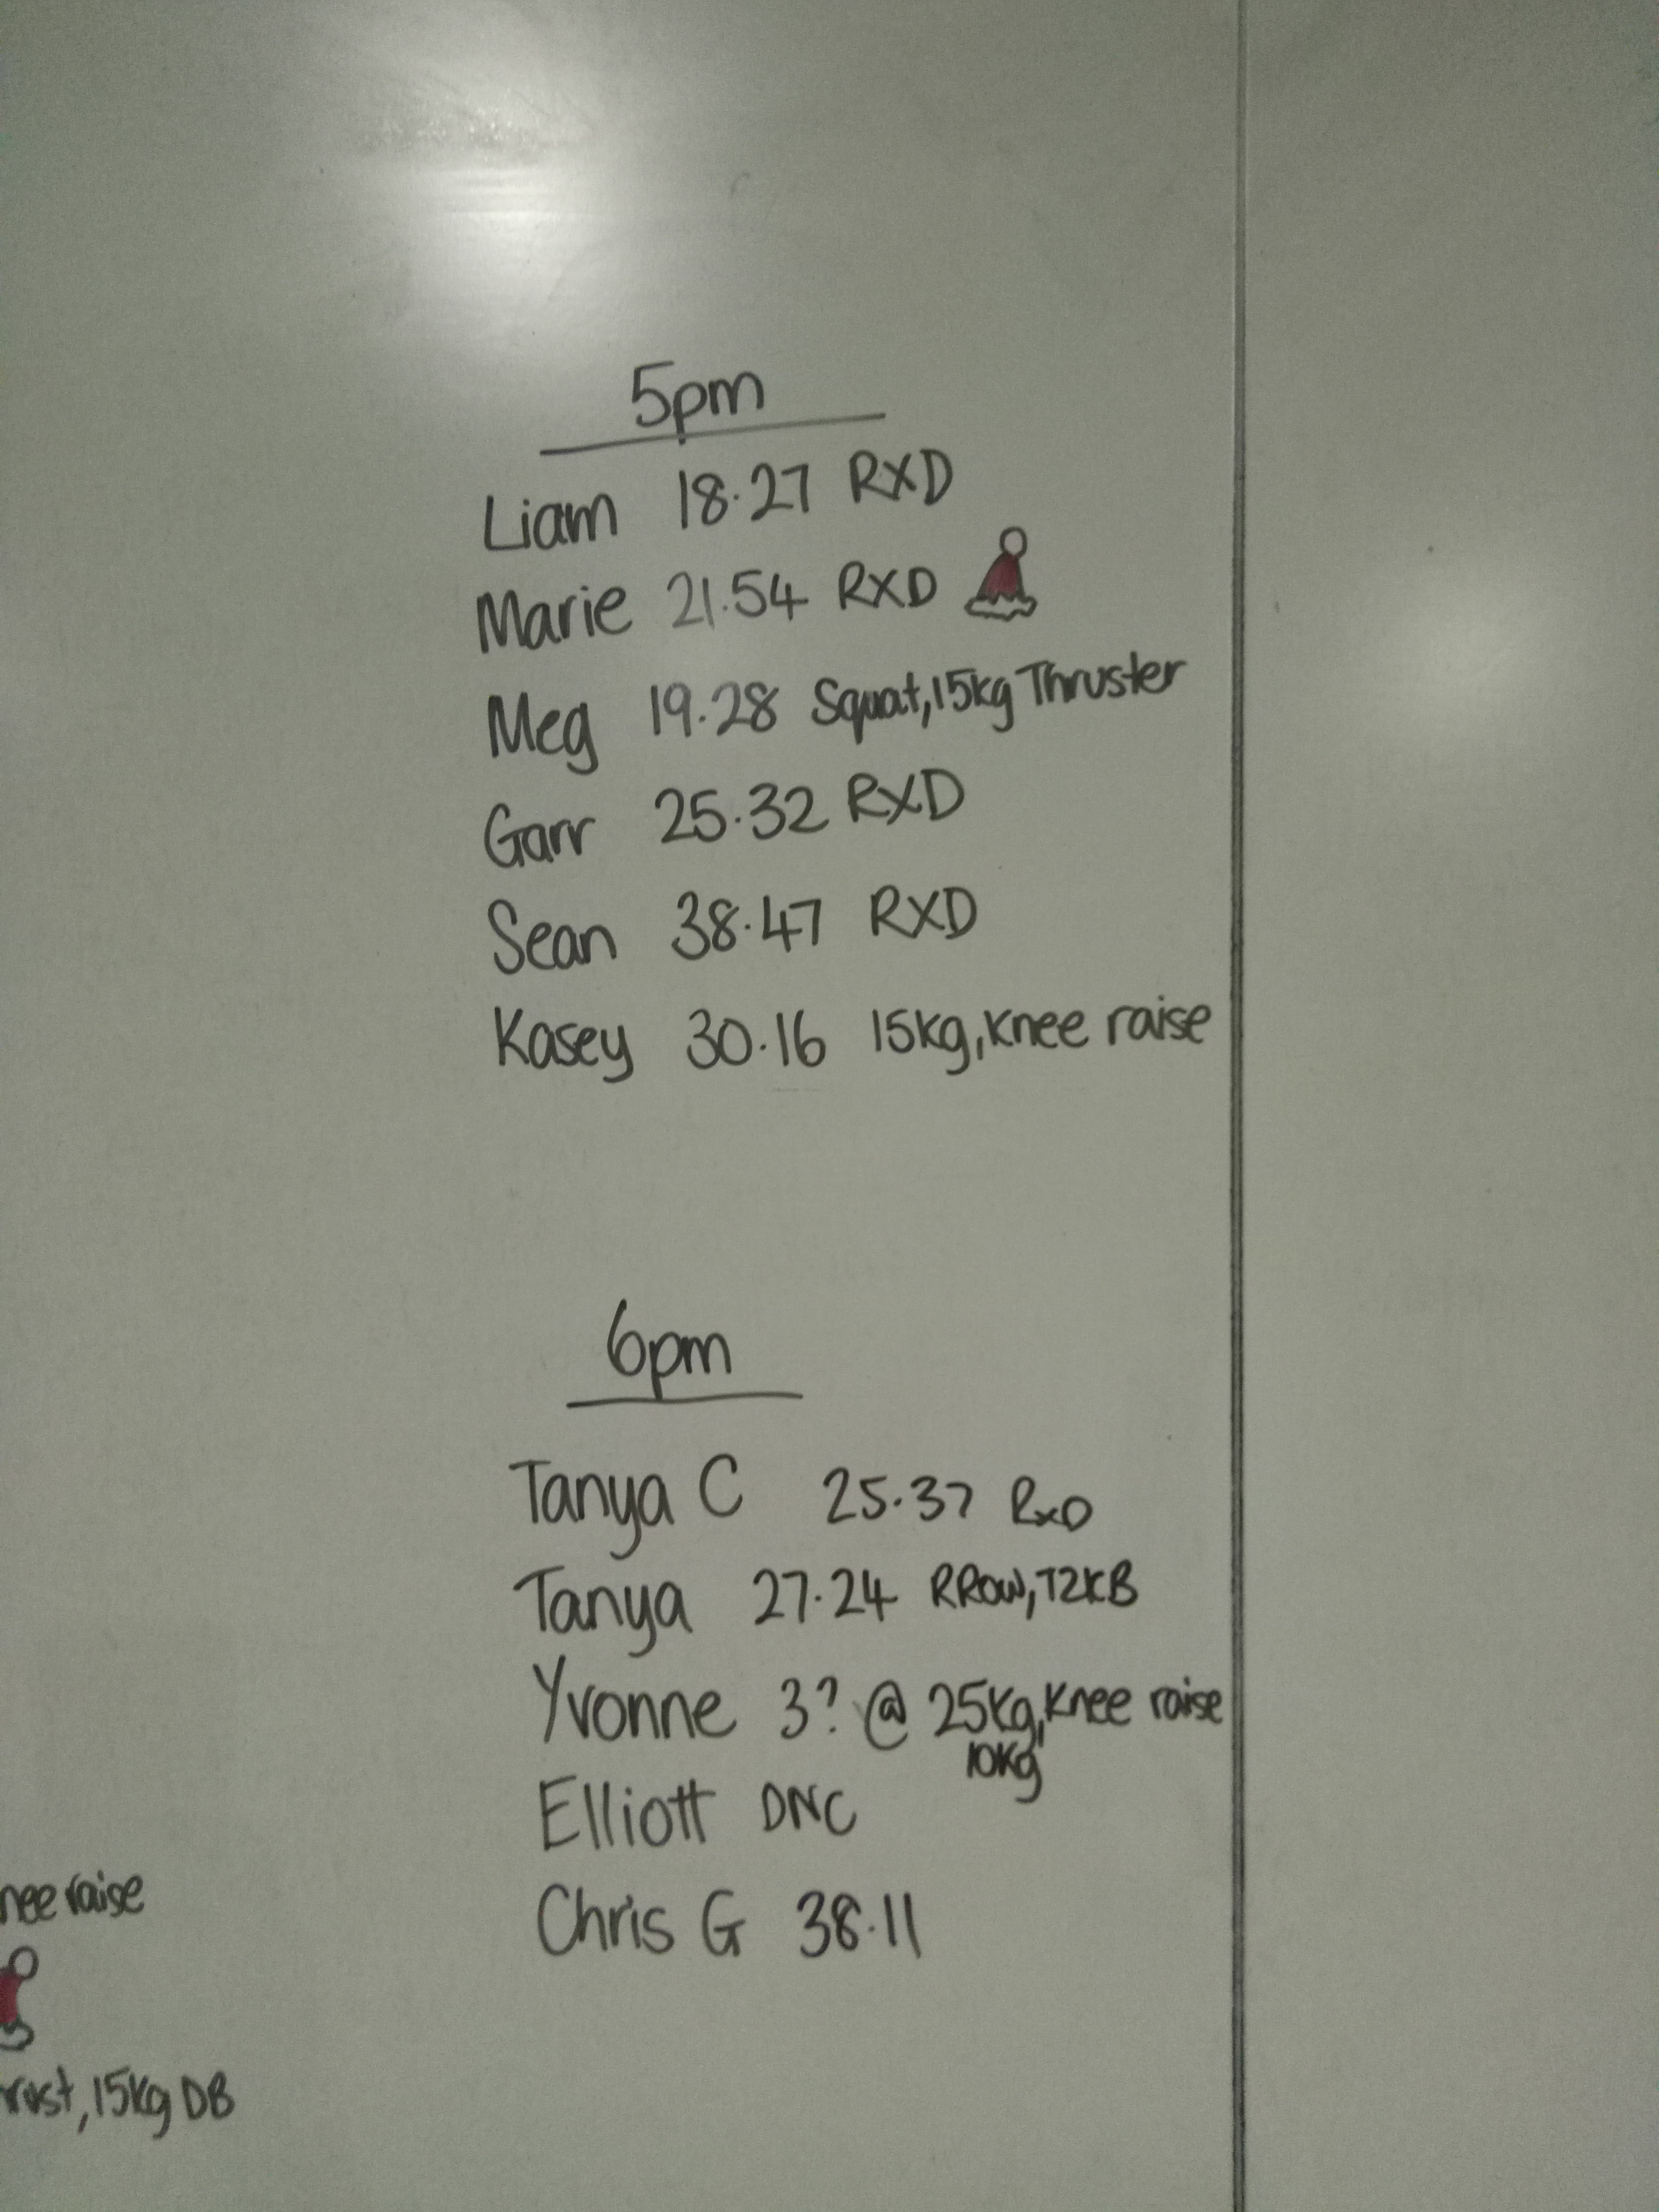 5pm
Liam 18.27 RXD
Marie 21.54 RXD
Meg 19.28 Squat, 15kg Thruster
Garr 25.32 RXD
Sean 38.47 RXD
Kasey 30.16 15kg, Knee raise
6pm
Tanya C 25.37 RxD
Tanya 27.24 RRow, T2KB
Yvonne 3? @ 25kg, Knee raise
10kg
Elliott DNC
Chris G 38.11
nee raise
rust, 15kg DB